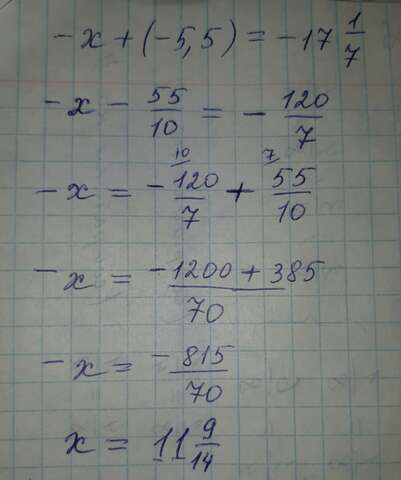 -x + (-5,5) = -17 1/7
-x - 55/10 = - 120/7
-x = - 120/7 (10 + 55/10 (7
-x = -1200 + 385/70
-x = -815/70
x = 11 9/14